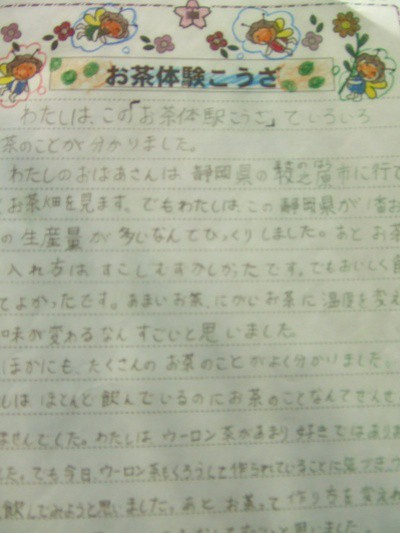 お茶体験こうざ
わたしは、この「お茶体験こうざ」でいろいろ
茶のことが分かりました。
わたしのおばあさんは、静岡県の 市に行て
お茶畑を見ます。でもわたしは、この静岡県が1番お
の生産量が多いなんてびっくりしました。あとお茶
入れ方はすこしむずかしかったです。でもおいしく飲
てよかったです。あまいお茶、にがいお茶に温度を変え
味が変わるなんすごいと思いました。
ほかにも、たくさんのお茶のことがよく分かりました。
しは、ほとんど飲んでいるのにお茶のことなんてぜんぜ
ませんでした。わたしは、ウーロン茶があまり好きではありま
た。でも今日、ウーロン茶もくろうして作られていることに気づき
飲んでみようと思いました。あと、お茶って作り方を変え
と思いました。